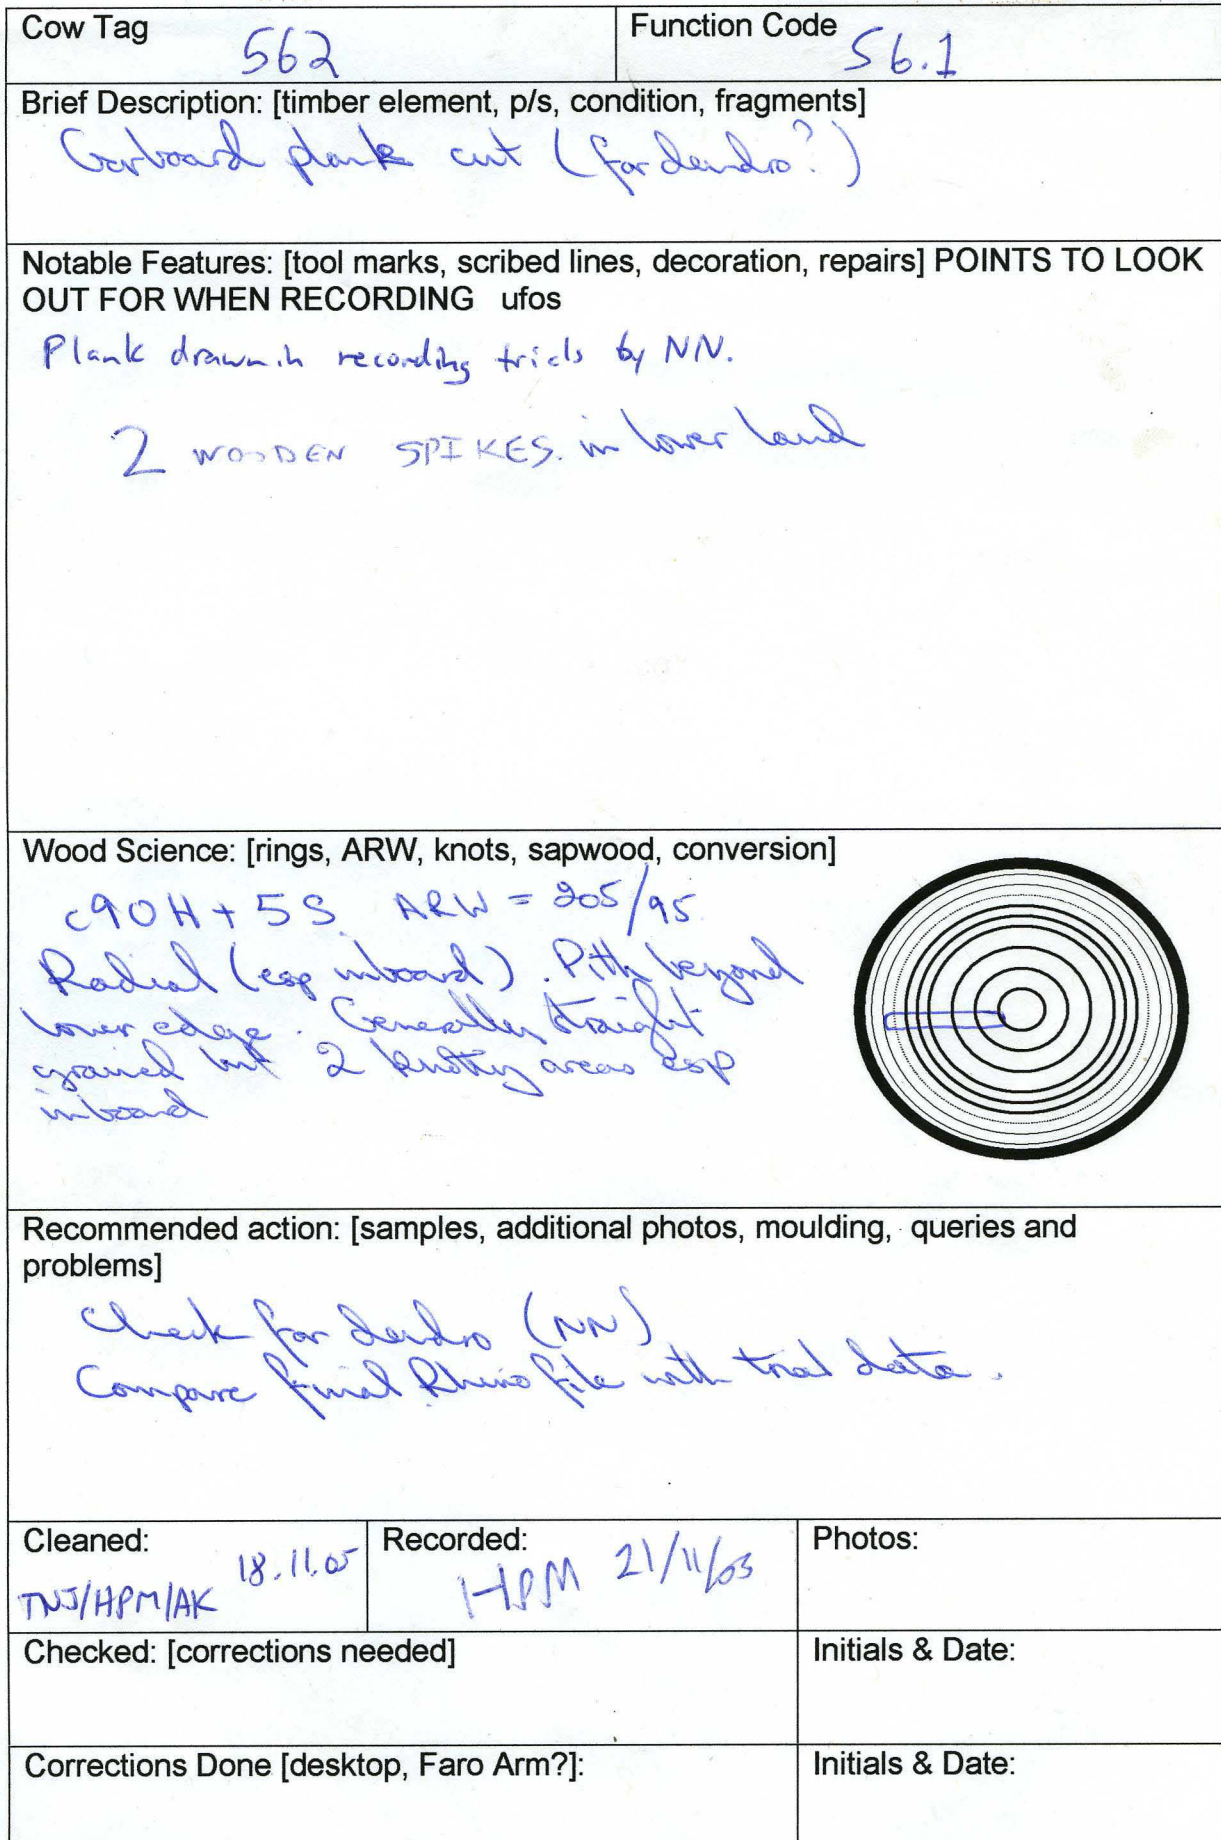 Cow Tag 562
Function Code S6.1
Brief Description: [timber element, p/s, condition, fragments]
Garboard plank cut (for dendro?)
Notable Features: [tool marks, scribed lines, decoration, repairs] POINTS TO LOOK
OUT FOR WHEN RECORDING ufos
Plank drawn in recording trials by NN.
2 WOODEN SPIKES. in lower land
Wood Science: [rings, ARW, knots, sapwood, conversion]
c90H + 5S. ARW = 205/95
Radial (esp inboard). Pith beyond
lower edge. Generally straight
grained but 2 knotty areas esp
inboard
Recommended action: [samples, additional photos, moulding, queries and
problems]
Check for dendro (NN)
Compare final Rhino file with trial data.
Cleaned: 18.11.05
TNJ/HPM/AK
Recorded:
HPM 21/11/05
Photos:
Checked: [corrections needed]
Initials & Date:
Corrections Done [desktop, Faro Arm?]:
Initials & Date: